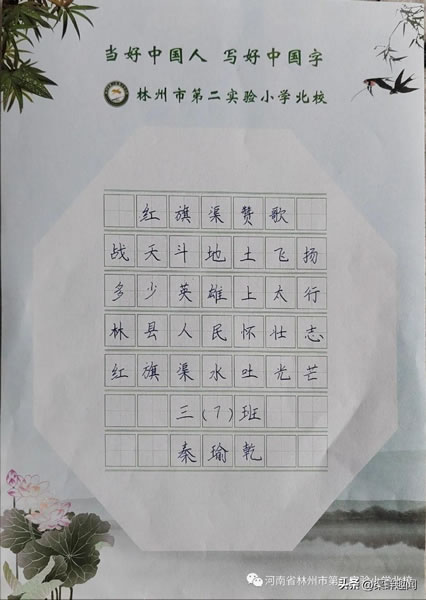 当好中国人 写好中国字
林州市第二实验小学北校
红旗渠赞歌
战天斗地土飞扬
多少英雄上太行
林县人民怀壮志
红旗渠水吐光芒
三(7)班
秦瑜乾
河南省林州市第二实验小学北校
头条